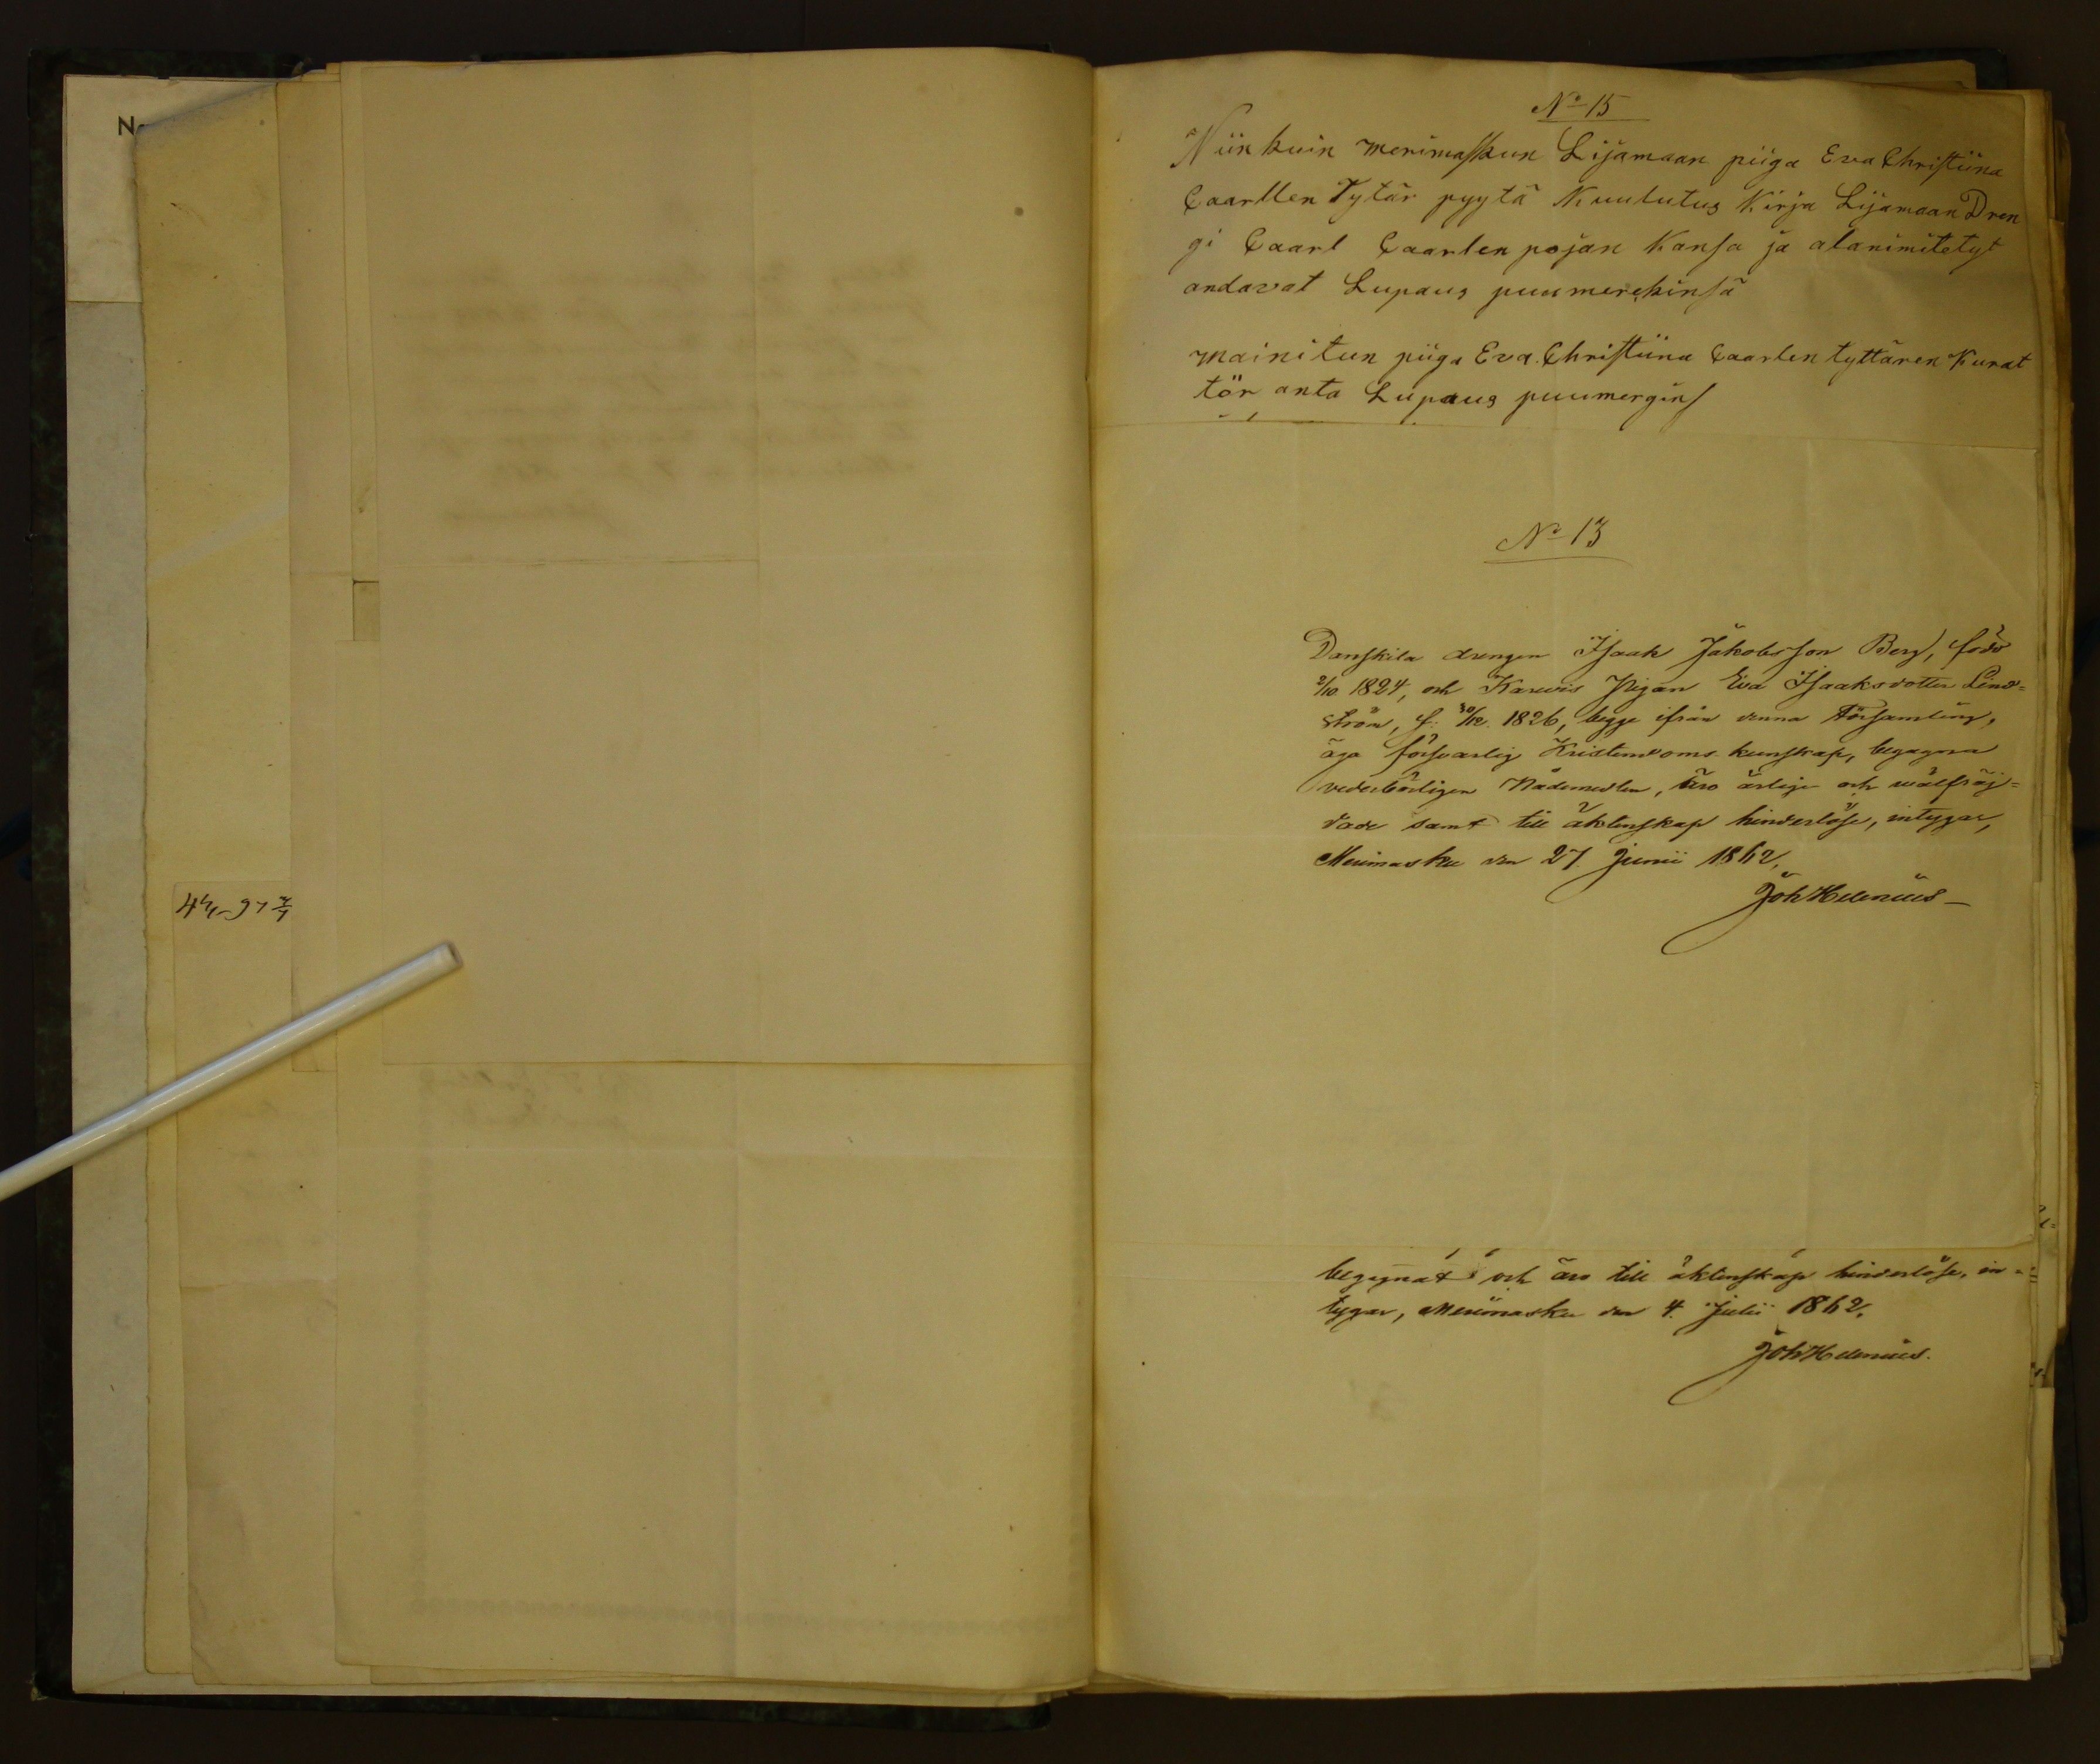 N
44-97
No 15
Niin kuin merimaskun Lijamaan piiga Eva Christiina
Caarllen Tytär pyytä Kuulutus Kirja Lijamaan Dren
gi Caarl Caarlen pojan Kansa ja alanimitetyt
andavat Lupaus puumerekinsä
mainitun piiga Eva Christiina Caarlen tyttären Kurat
tör anta Lupaus puumergins
No 13
Danskila drengen Isaak Jakobsson Berg, född
2/10 1824, och Karvis Pigan Eva Isaksdotter Lind-
ström, f. 30/12 1826, begge ifrån denna Församling,
äga försvarlig Kristendoms kunskap, begagna
vederbörligen Nådemedlen, äro ärlige och wälfräj-
dade samt till äktenskap hinderlöse, intygar,
Merimasku den 27. Junii 1862,
Joh Helenius
begagnat och äro till äktenskap hinderlöse, in-
tygar, Merimasku den 4. Julii 1862.
Joh Helenius.